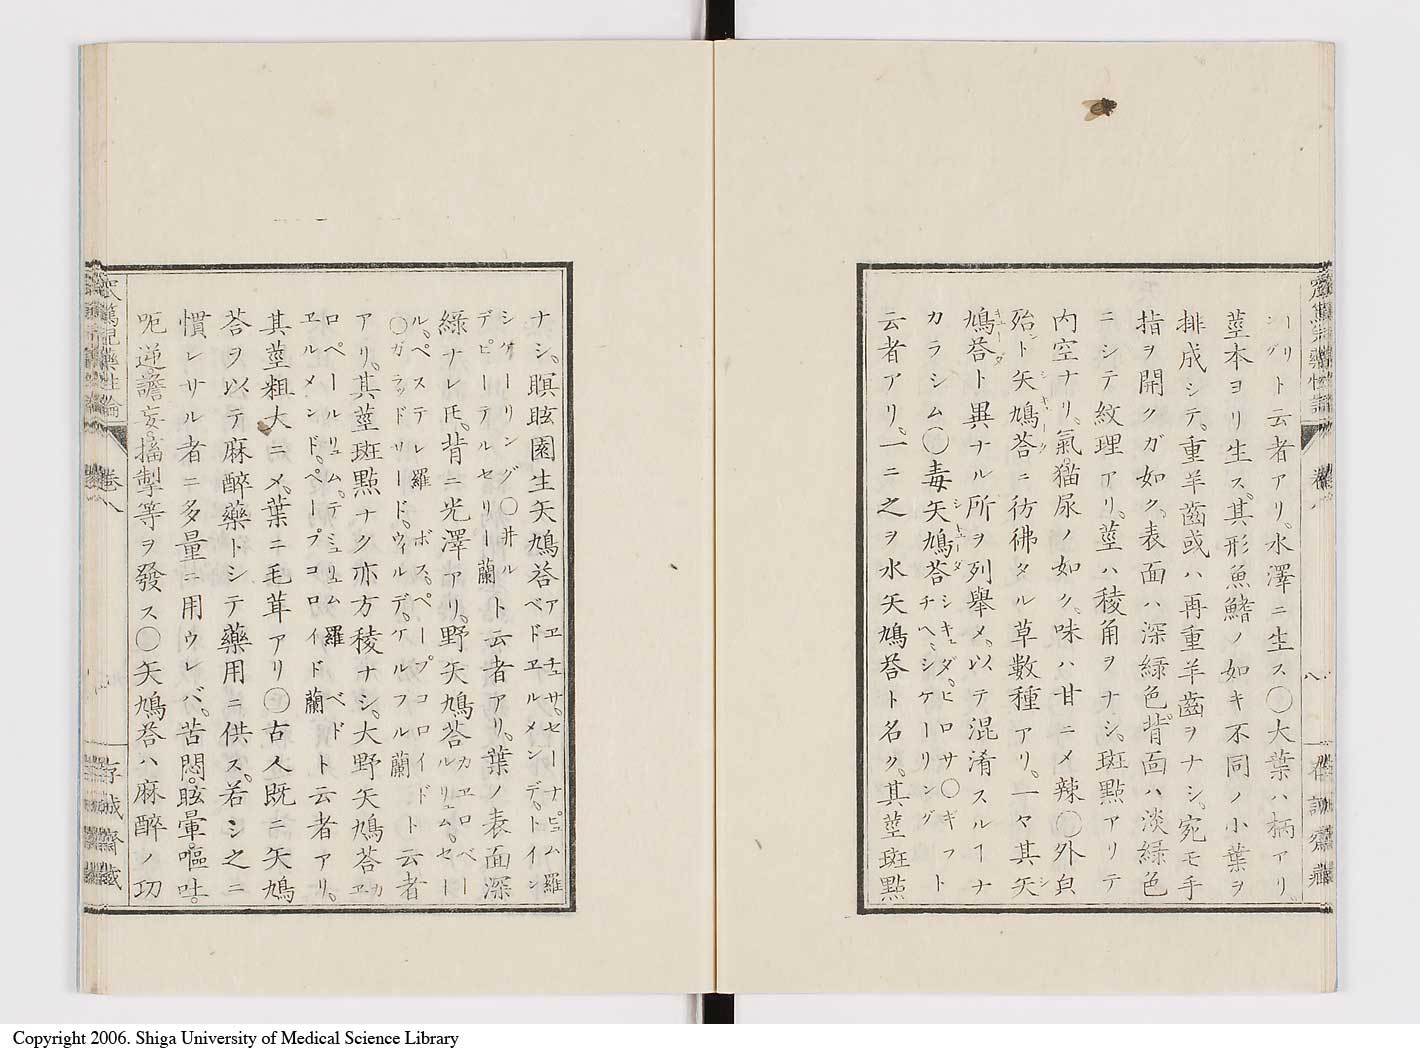 シーリング
ト云者アリ、水澤ニ生ス〇大葉ハ柄アリ
莖本ヨリ生ス、其形魚鰭ノ如キ不同ノ小葉ヲ
排成シテ、重羊齒或ハ再重羊齒ヲナシ、宛モ手
指ヲ開クガ如ク、表面ハ深緑色背面ハ淡緑色
ニシテ紋理アリ、莖ハ稜角ヲナシ、斑點アリテ
内空ナリ、氣猫尿ノ如ク、味ハ甘ニメ辣〇外貞
殆ント矢鳩荅ニ彷彿タル草數種アリ、一々其矢
鳩荅ト異ナル所ヲ列舉メ、以テ混淆スルヿナ
カラシム〇毒矢鳩荅シキュダ、ヒロサ〇ギフトチヘ、シケーリング ト
云者アリ、一ニ之ヲ水矢鳩荅ト名ク、其莖斑點
ナシ、瞑眩園生矢鳩荅アヱチュサ、セーナピュム 羅 ベドヱルメンデ、トイン
シケーリング〇井ルデピーテルセリー 蘭 ト云者アリ、葉ノ表面深
緑ナレ𪜈、背ニ光澤アリ、野矢鳩荅カヱロペールリュム、セー
ル、ペステレ 羅 ボス、ペープコロイド ト云者
〇ガラッドリード、ウィルデ、ケルフル 蘭
アリ、其莖斑點ナク亦方稜ナシ、大野矢鳩荅カヱ
ロペールリュム、テミュリュム 羅 ベド
ヱルメンド、ペープコロイド 蘭 ト云者アリ、
其莖粗大ニメ、葉ニ毛茸アリ〇古人既ニ矢鳩
荅ヲ以テ麻醉藥トシテ藥用ニ供ス、若シ之ニ
慣レサル者ニ多量ニ用ウレバ、苦悶、眩暈、嘔吐、
呃逆譫妄、搐掣等ヲ發ス〇矢鳩荅ハ麻醉ノ功
窊篤兒藥性論
卷八
存誠齋藏